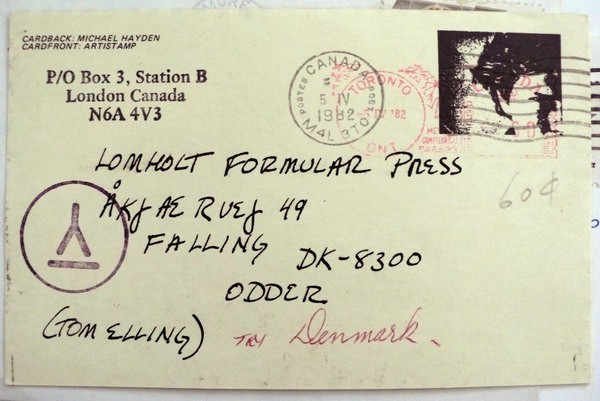 CARDBACK: MICHAEL HAYDEN
CARDFRONT: ARTISTAMP
P/O Box 3, Station B
London Canada
N6A 4V3
CANADA
POSTES POST
5 IV
1982
M4L 3T0
TORONTO
IV '82
ONT
60¢
LOMHOLT FORMULAR PRESS
ÅKJAERVEJ 49
FALLING DK-8300
ODDER
(TOM ELLING) TRY Denmark.